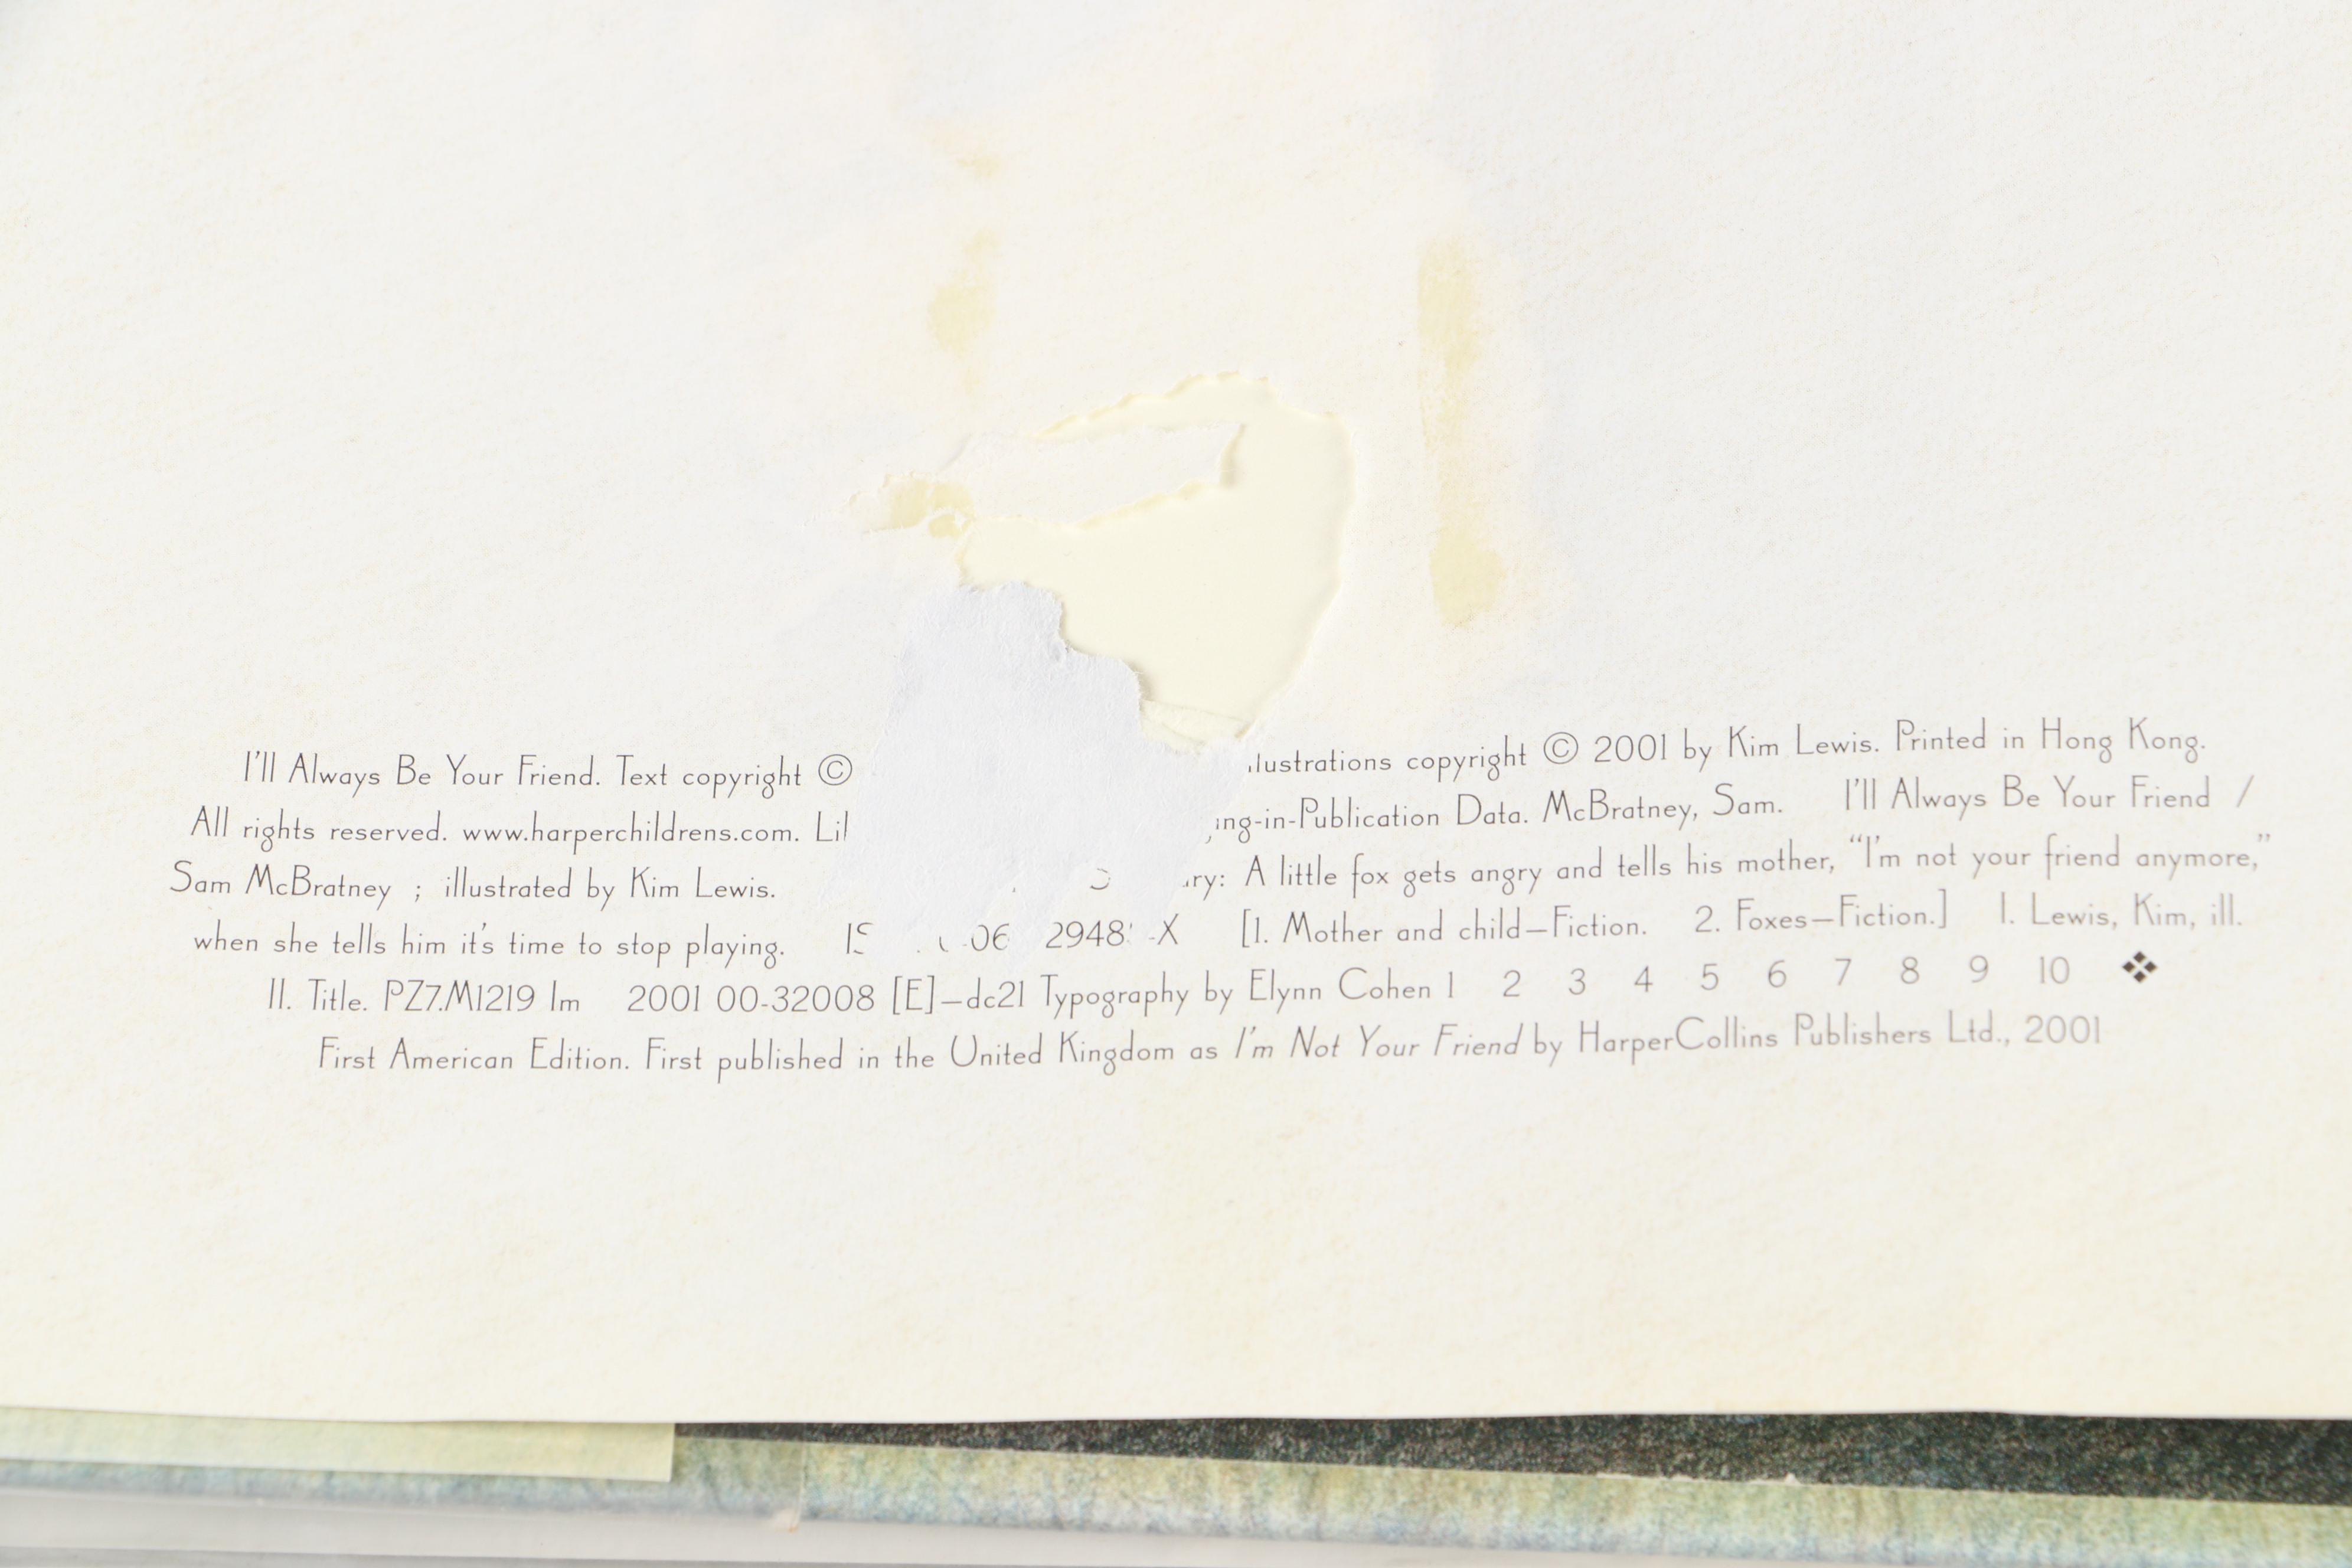 I'll Always Be Your Friend. Text copyright © lustrations copyright © 2001 by Kim Lewis. Printed in Hong Kong.
All rights reserved. www.harperchildrens.com. ing-in-Publication Data. McBratney, Sam. I'll Always Be Your Friend /
Sam McBratney ; illustrated by Kim Lewis. ry: A little fox gets angry and tells his mother, “I'm not your friend anymore,”
when she tells him it's time to stop playing. 06 2948 -X [1. Mother and child—Fiction. 2. Foxes—Fiction.] I. Lewis, Kim, ill.
II. Title. PZ7.M1219 Im 2001 00-32008 [E]—dc21 Typography by Elynn Cohen 1 2 3 4 5 6 7 8 9 10 ❖
First American Edition. First published in the United Kingdom as I'm Not Your Friend by HarperCollins Publishers Ltd., 2001